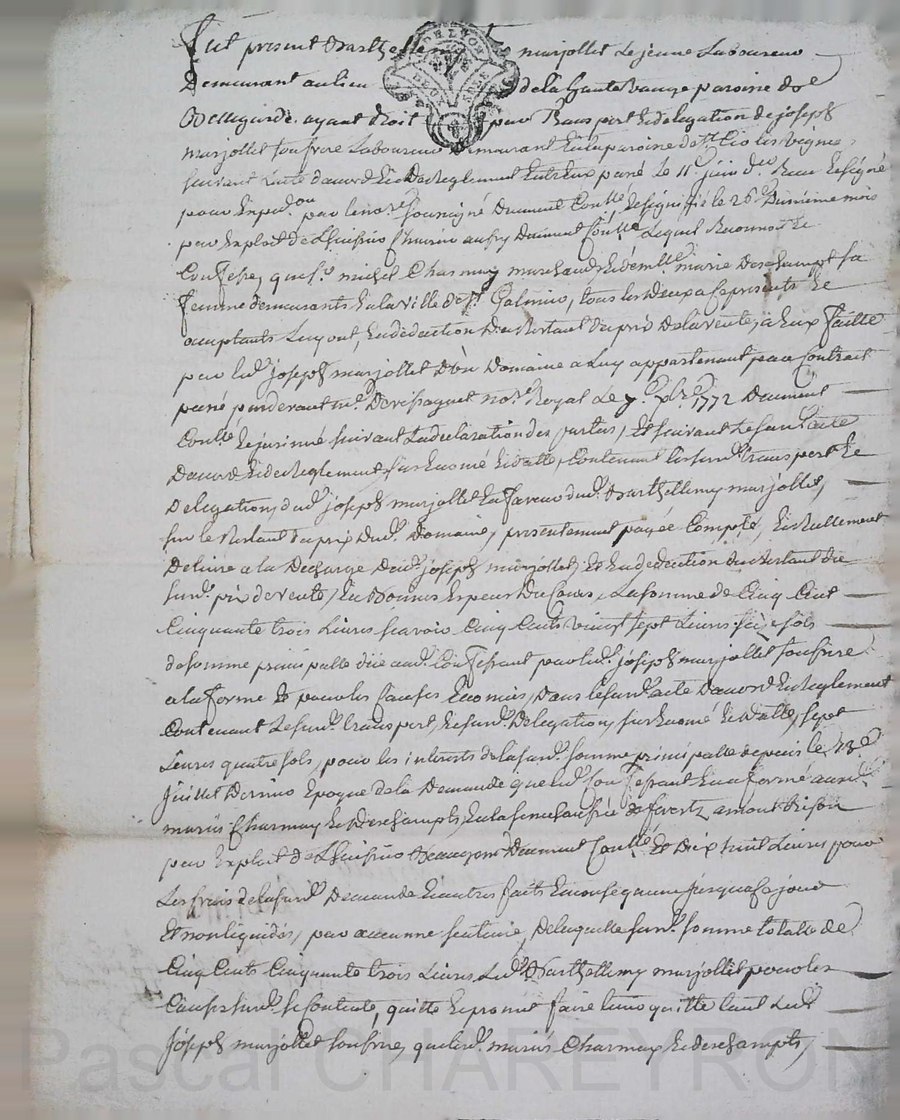 fut present Barthelle marjollet Lejeune Laboureur
Demeurant au lieu de la haute paroisse de
Bellegarde ayant droit par Transport & delegation de joseph
marjollet son frere Laboureur Demeurant En la paroisse de
suivant L'acte d'acord Et De Reglement Entr'Eux passé Le 11e juin Der Recu & signé
pour Expedon par le nore soussigné Duement Conllé & signiffié le 26e Du mème mois
par Exploit de L'huissier aufry Duement Conllé Lequel Reconnoit &
Confesse, que sr michel Charmay marchand & demlle marie Deschampt sa
femme demeurants En la ville de St Galmier, tous les Deux a ce presents &
acceptants Luy ont, En deduction Du Restant du prix De la vente, à Eux faitte
par led. joseph marjollet D'un Domaine a Luy appartenant par Contrat
passé pardevant me nore Royal Le 7e 1772 Duement
Conllé & insinué suivant La declaration des parties, Et suivant Le susd. acte
Dacord Et de Reglement, sus Enoncé & datté, Contenant les susd. transport &
Delegation, dud. joseph marjollet En faveur dud. Barthellemy marjollet,
sur le Restant du prix Dud. Domaine, presentement payée Compté, Et reellement
Delivré a la Decharge Dud. joseph marjollet, Et En deduction Du Restant du
susd. prix de vente, En Bonnes Especes Du Cours, La somme de Cinq Cent
Cinquante trois Livres scavoir Cinq Cents vingt sept Livres seize sols
de somme principalle düe aud. Confessant par led. joseph marjollet son frere
a la forme & pour les Causes Enoncées, Dans le susd. acte Dacord Et Reglement
Contenant Le susd. transport, & susd. Delegation, sus Enoncé & datté, sept
Livres quatre sols, pour les interets de la susd. somme principalle depuis le 13e
juillet Dernier Epoque de la Demande que led. Confessant En a formé auxd.
mariés Charmay & Deschampts, En la senechaussée de forertz a montbrison
par Exploit de L'huissier Duement Conllé, Et Dix huit Livres pour
Les frais de la susd. Demande & autres faits En consequance jusqu'a ce jour
Et non liquidés, par aucunne sentence, De laquelle susd. somme totalle de
Cinq Cents Cinquante trois Livres Led. Barthellemy marjollet pour les
Causes susd. se Contente, quitte & promet faire tenir quitte tant Led.
joseph marjollet son frere, que lesd. mariés Charmay & deschampts,
Pascal CHAREYRON